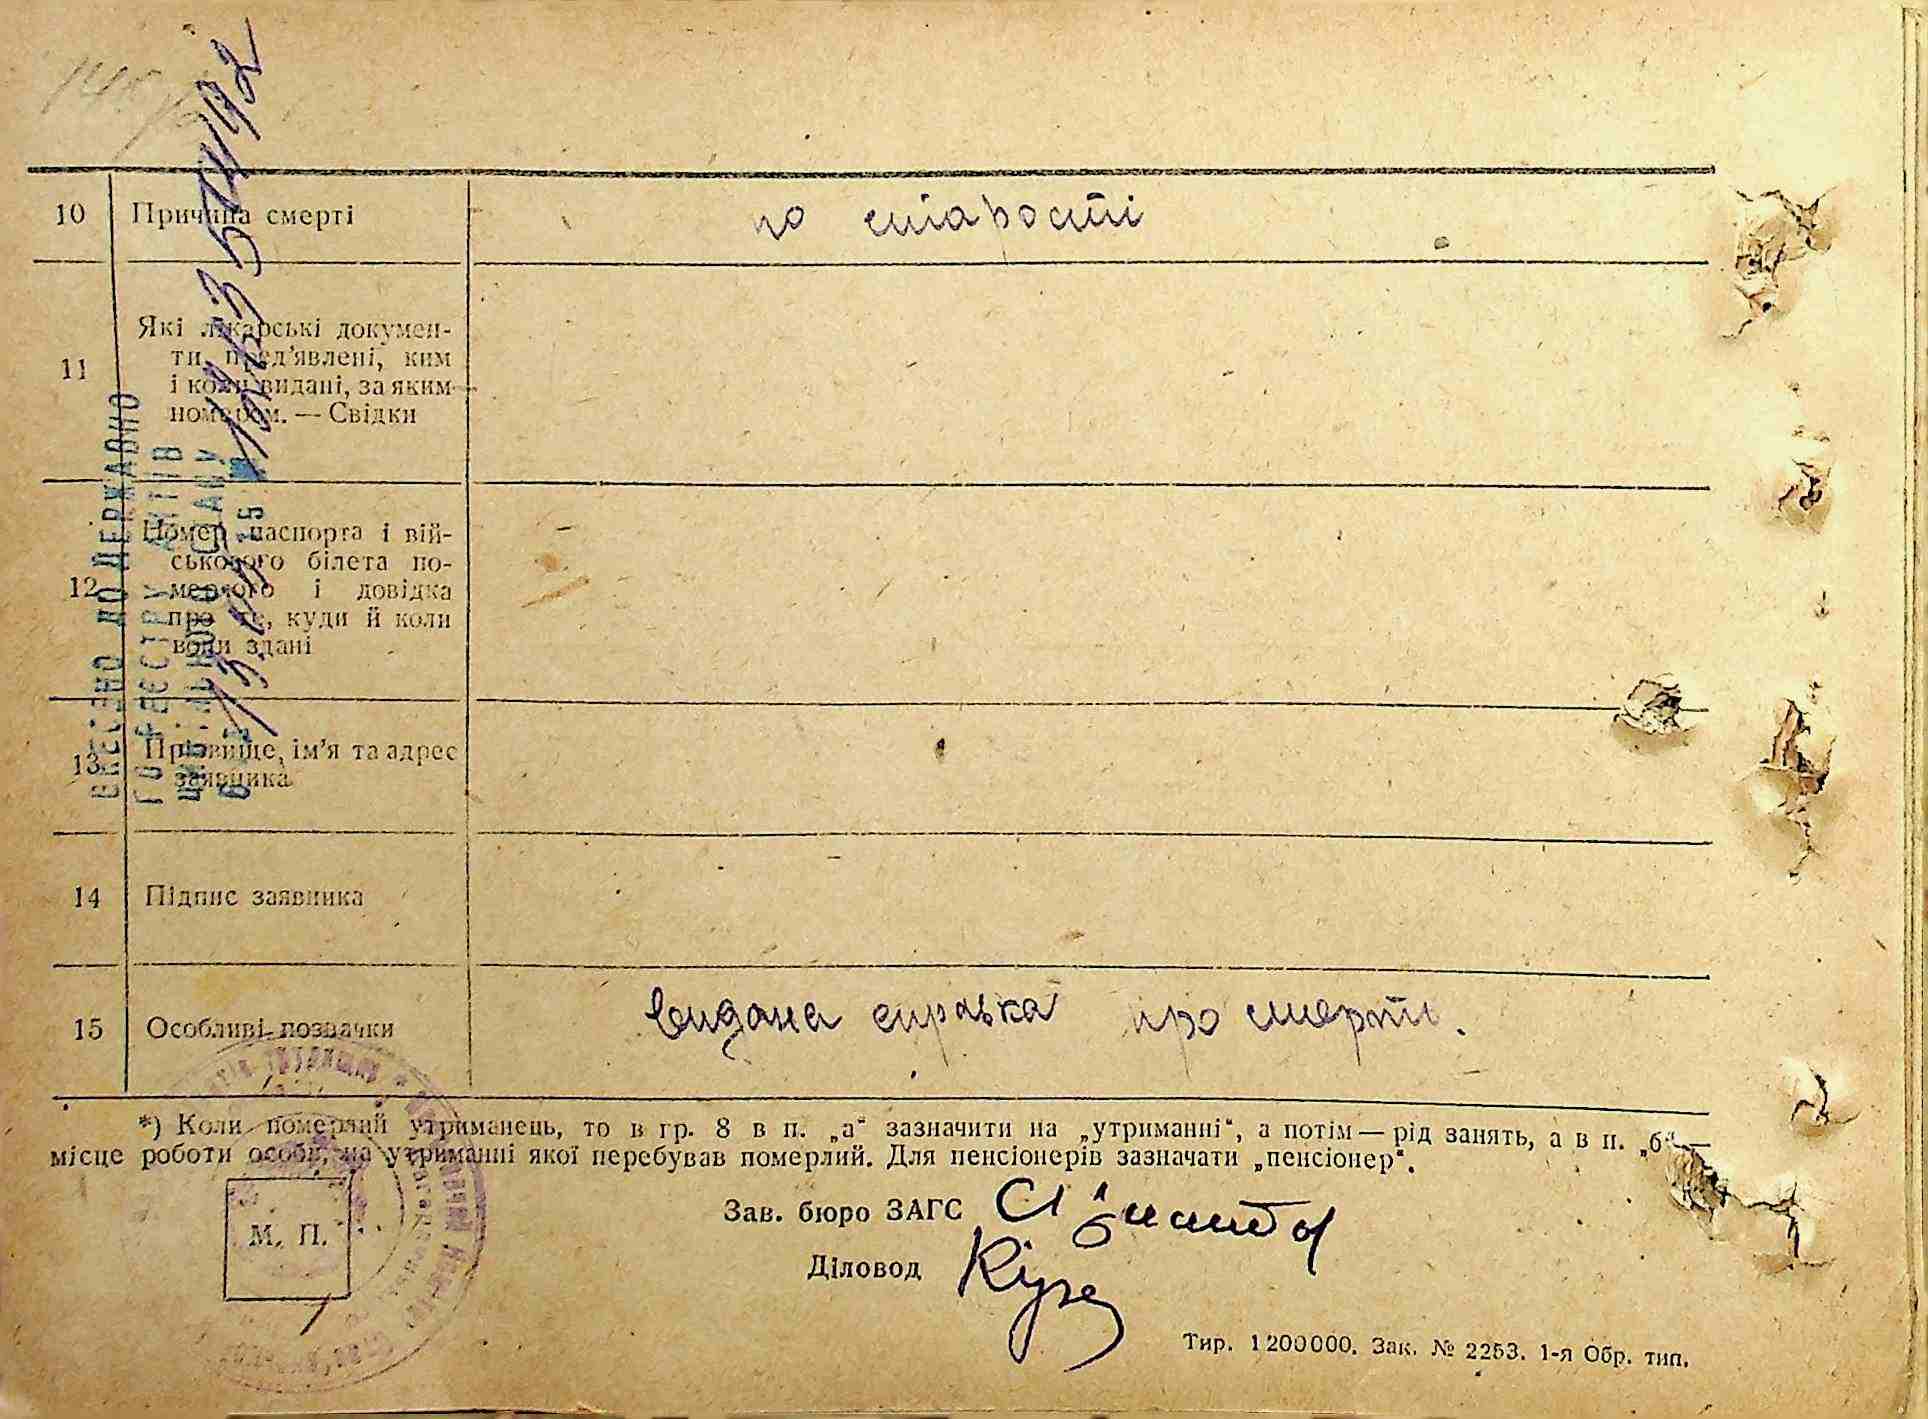 10 Причина смерті по старості
11 Які лікарські докумен-
ти пред’явлені, ким
і коли видані, за яким
номером. — Свідки
12 Номер паспорта і вій-
ськового білета по-
мерлого і довідка
про те, куди й коли
вони здані
13 Прізвище, ім’я та адрес
заявника
14 Підпис заявника
15 Особливі позначки видана справка про смерть.
*) Коли померлий утриманець, то в гр. 8 в п. „а“ зазначити на „утриманні“, а потім — рід занять, а в п. „б“ —
місце роботи особи, на утриманні якої перебував померлий. Для пенсіонерів зазначати „пенсіонер“.
М. П.
Зав. бюро ЗАГС
Діловод
Тир. 1200000. Зак. № 2253. 1-я Обр. тип.
ВНЕСЕНО ДО ДЕРЖАВНО
ГО РЕЄСТРУ АКТІВ
ЦИВІЛЬНОГО СТАНУ